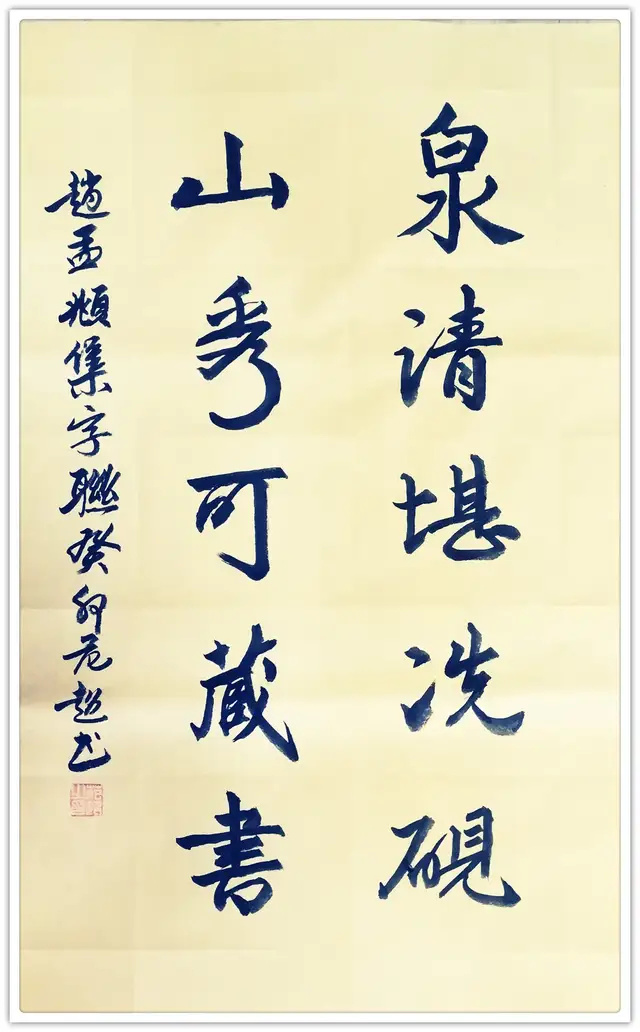 泉清堪洗硯
山秀可藏書
趙孟頫集字聯癸卯危超書